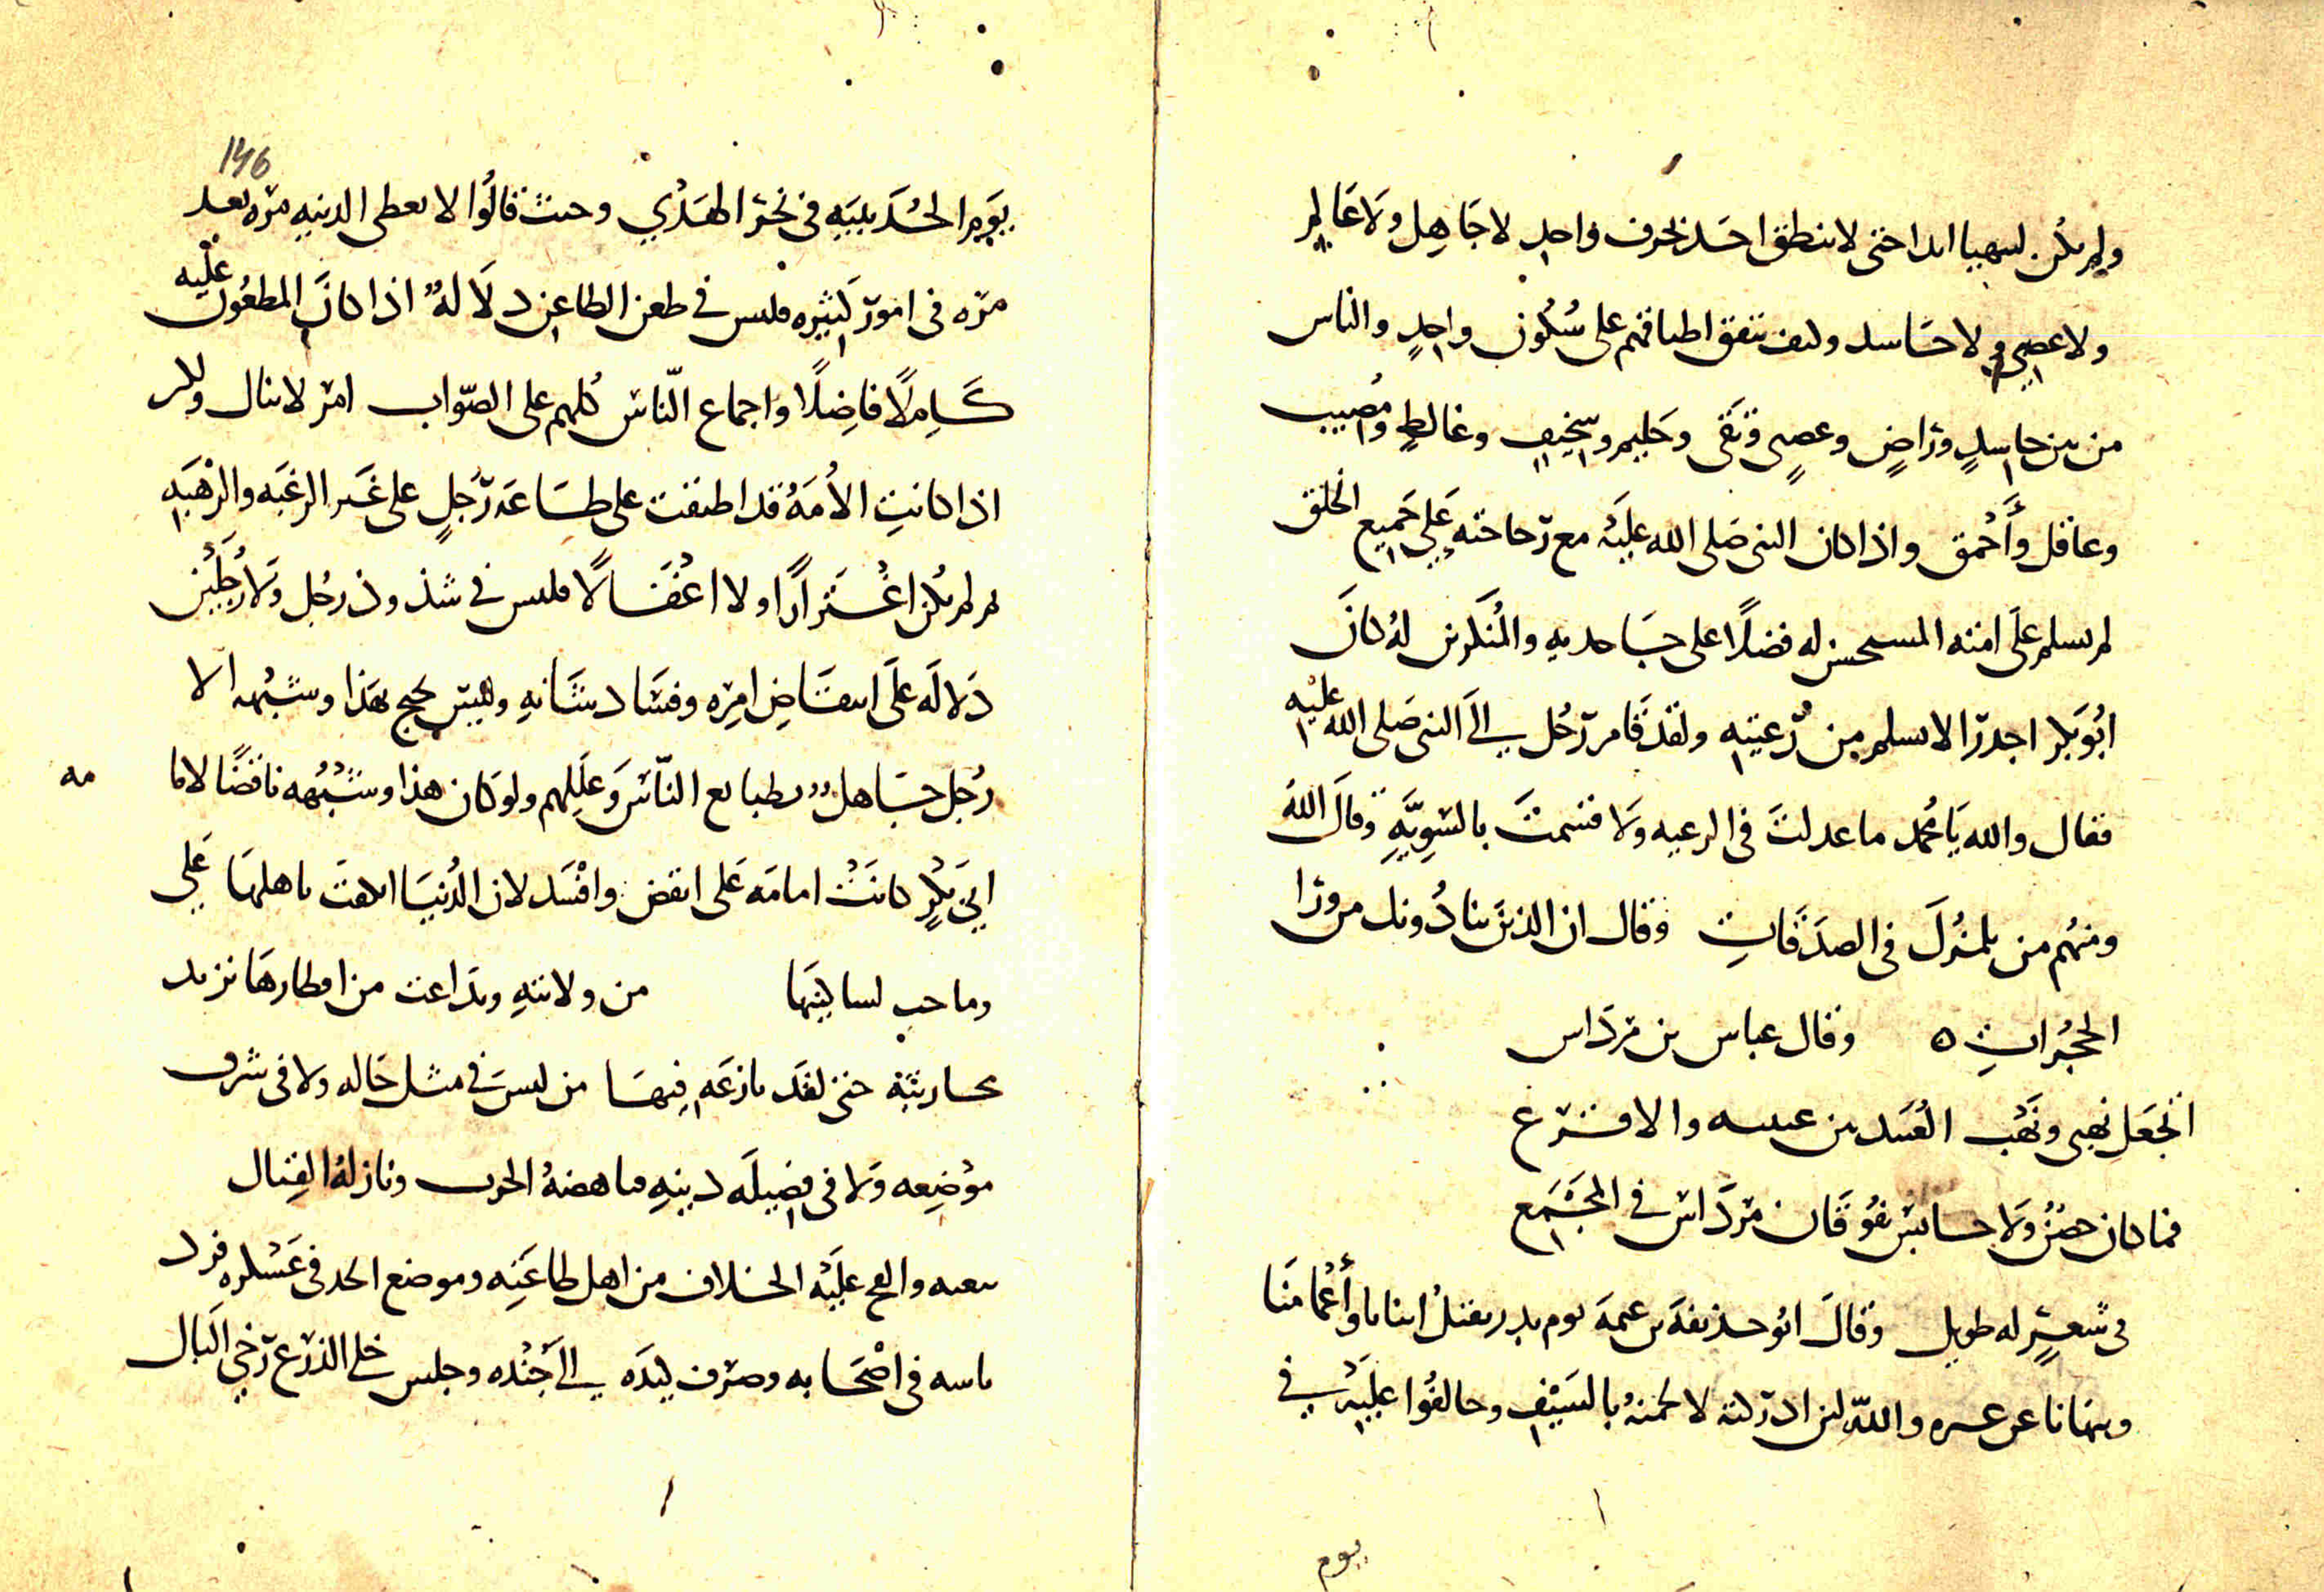 ولم يكن ليتهيا ابدا حتى لا ينطق احد بحرف واحد لا جاهل ولا عالم
ولا عصبى ولا حاسد وكيف تتفق اطباقهم على سكون واحد والناس
من بين حاسد وراض وعصبى وتقى وحليم وسخيف وغالط ومصيب
وعاقل وأحمق واذا كان النبى صلى الله عليه مع رجاحته على جميع الخلق
لم يسلم على امته المستحسن له فضلا على جاحديه والمنكرين له كان
ابو بكر اجدر الا يسلم من رعيته ولقد قام رجل الى النبى صلى الله عليه
فقال والله يا محمد ما عدلت فى الرعيه ولا قسمت بالسويه وقال الله
ومنهم من يلمزك فى الصدقات وقال ان الذين ينادونك من ورا
الحجرات ه وقال عباس بن مرداس
اتجعل نهبى ونهب العبيد بين عيينه والاقرع
فما كان حصن ولا حابس يفوقان مرداس في المجمع
فى شعر له طويل وقال ابو حذيفة بن عتبة يوم بدر يقتل ابنانا وأعمامنا
وينهانا عن والله لئن ادركته لالحمنه بالسيف وخالفوا عليه في
يوم
146
يوم الحديبيه فى نحر الهدي وحيث قالوا لا نعطى الدنيه مره بعد
مره فى امور كثيره فليس في طعن الطاعن دلاله اذا كان المطعون عليه
كاملا فاضلا واجماع الناس كلهم على الصواب امر لا ينال ولكن
اذا كانت الأمه قد اطبقت على طاعه رجل على غير الرغبه والرهبه
ثم لم يكن اغترارا ولا اغفالا فليس في شذوذ رجل ولا رجلين
دلاله على انتقاض امره وفساد شانه وليس يحتج بهذا وشبهه الا
رجل جاهل بطبايع الناس وعللهم ولو كان هذا وشبهه ناقضا لاما مه
ابي بكر كانت امامه على انقض وافسد لان الدنيا باهلها على
وما حب لساكنيها من ولايته وتداعت من اقطارها تريد
محاربته حتى لقد نازعه فيها من ليس في مثل حاله ولا فى شرف
موضعه ولا فى فضيله دينه فناهضه الحرب ونازله القتال
والح عليه الخلاف من اهل طاعته وموضع الحد فى عسكره فرد
باسه فى اصحابه وصرف كيده الى جنده وجلس خلي الذرع رخي البال